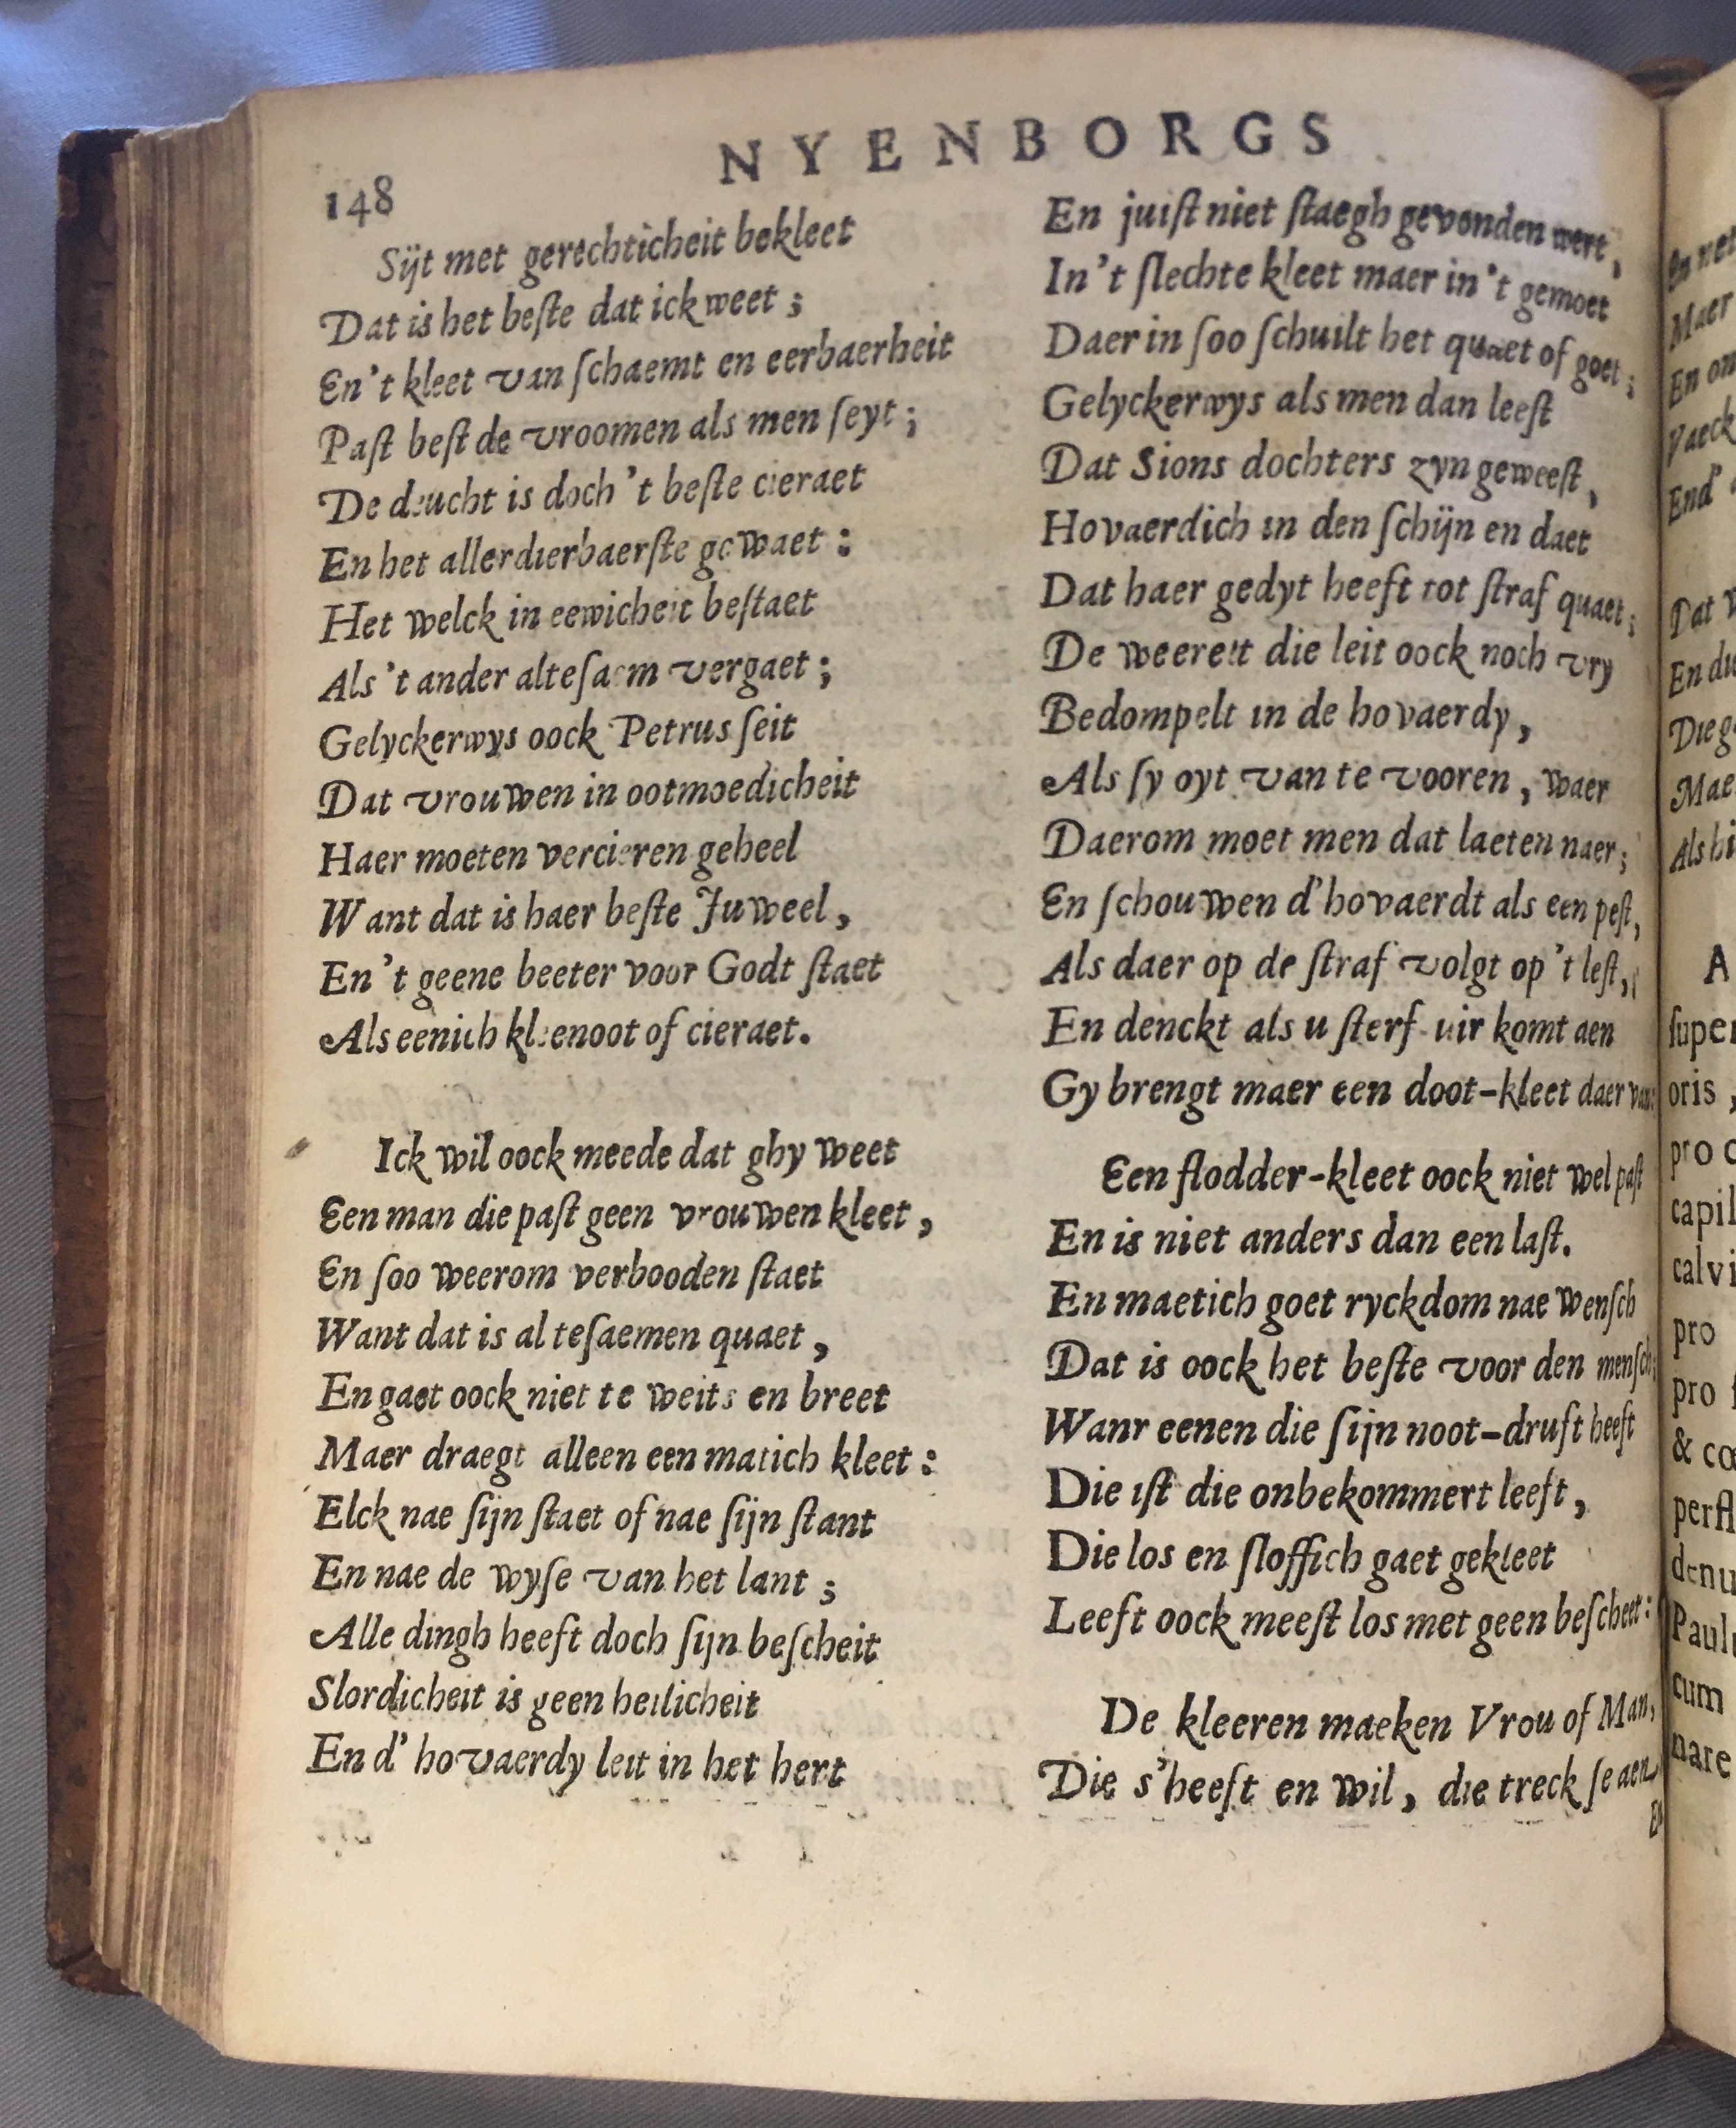 NYENBORGS
148
Sijt met gerechticheit bekleet
Dat is het beſte dat ick weet ;
En 't kleet van ſchaemt en eerbaerheit
Paſt beſt de vroomen als men ſeyt ;
De deucht is doch 't beſte cieraet
En het allerdierbaerſte gewaet :
Het welck in eewicheit beſtaet
Als 't ander alteſaem vergaet ;
Gelyckerwys oock Petrus ſeit
Dat vrouwen in ootmoedicheit
Haer moeten vercieren geheel
Want dat is haer beſte Juweel ,
En 't geene beeter voor Godt ſtaet
Als eenich kleenoot of cieraet.
Ick wil oock meede dat ghy weet
Een man die paſt geen vrouwen kleet ,
En ſoo weerom verbooden ſtaet
Want dat is al teſaemen quaet ,
En gaet oock niet te weits en breet
Maer draegt alleen een matich kleet :
Elck nae ſijn ſtaet of nae ſijn ſtant
En nae de wyſe van het lant ;
Alle dingh heeft doch ſijn beſcheit
Slordicheit is geen heilicheit
En d' hovaerdy leit in het hert
En juiſt niet ſtaegh gevonden wert ,
In 't ſlechte kleet maer in 't gemoet
Daer in ſoo ſchuilt het quaet of goet ;
Gelyckerwys als men dan leeſt
Dat Sions dochters zyn geweeſt ,
Hovaerdich in den ſchijn en daet
Dat haer gedyt heeft tot ſtraf quaet ;
De weerelt die leit oock noch vry
Bedompelt in de hovaerdy ,
Als ſy oyt van te vooren , waer
Daerom moet men dat laeten naer ;
En ſchouwen d' hovaerdt als een peſt,
Als daer op de ſtraf volgt op 't leſt,
En denckt als u ſterf-uir komt aen
Gy brengt maer een doot-kleet daer van:
Een flodder-kleet oock niet wel paſt
En is niet anders dan een laſt.
En maetich goet ryckdom nae wenſch
Dat is oock het beſte voor den menſch;
Wanr eenen die ſijn noot-druft heeft
Die iſt die onbekommert leeft ,
Die los en ſloffich gaet gekleet
Leeft oock meeſt los met geen beſcheet :
De kleeren maeken Vrou of Man,
Die s'heeft en wil , die treck ſe aen
En
Maer
En
End'
Dat
En
Als
A
oris ,
pro
pro
pro
&
cum
nare